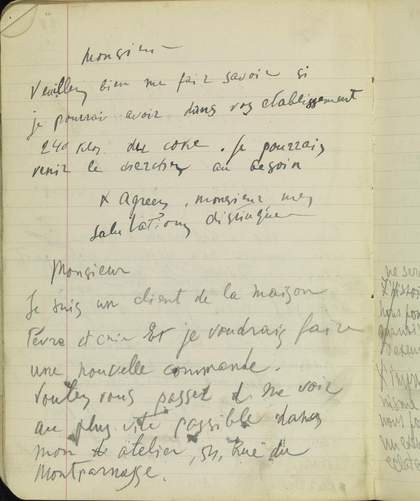 Monsieur
Veuillez bien me fair savoir si
je pourrai avoir dans vos etablissement
240 Klos du coke. Je pourrais
venir le chercher au besoin
& Agreez, monsieur mes
salutations distingué
Monsieur
Je suis un client de la maison
et je voudrais faire
une nouvelle commande.
Voulez vous passer d me voir
au plus vite possible dans
mon atelier, 54, Rue du
Montparnasse.